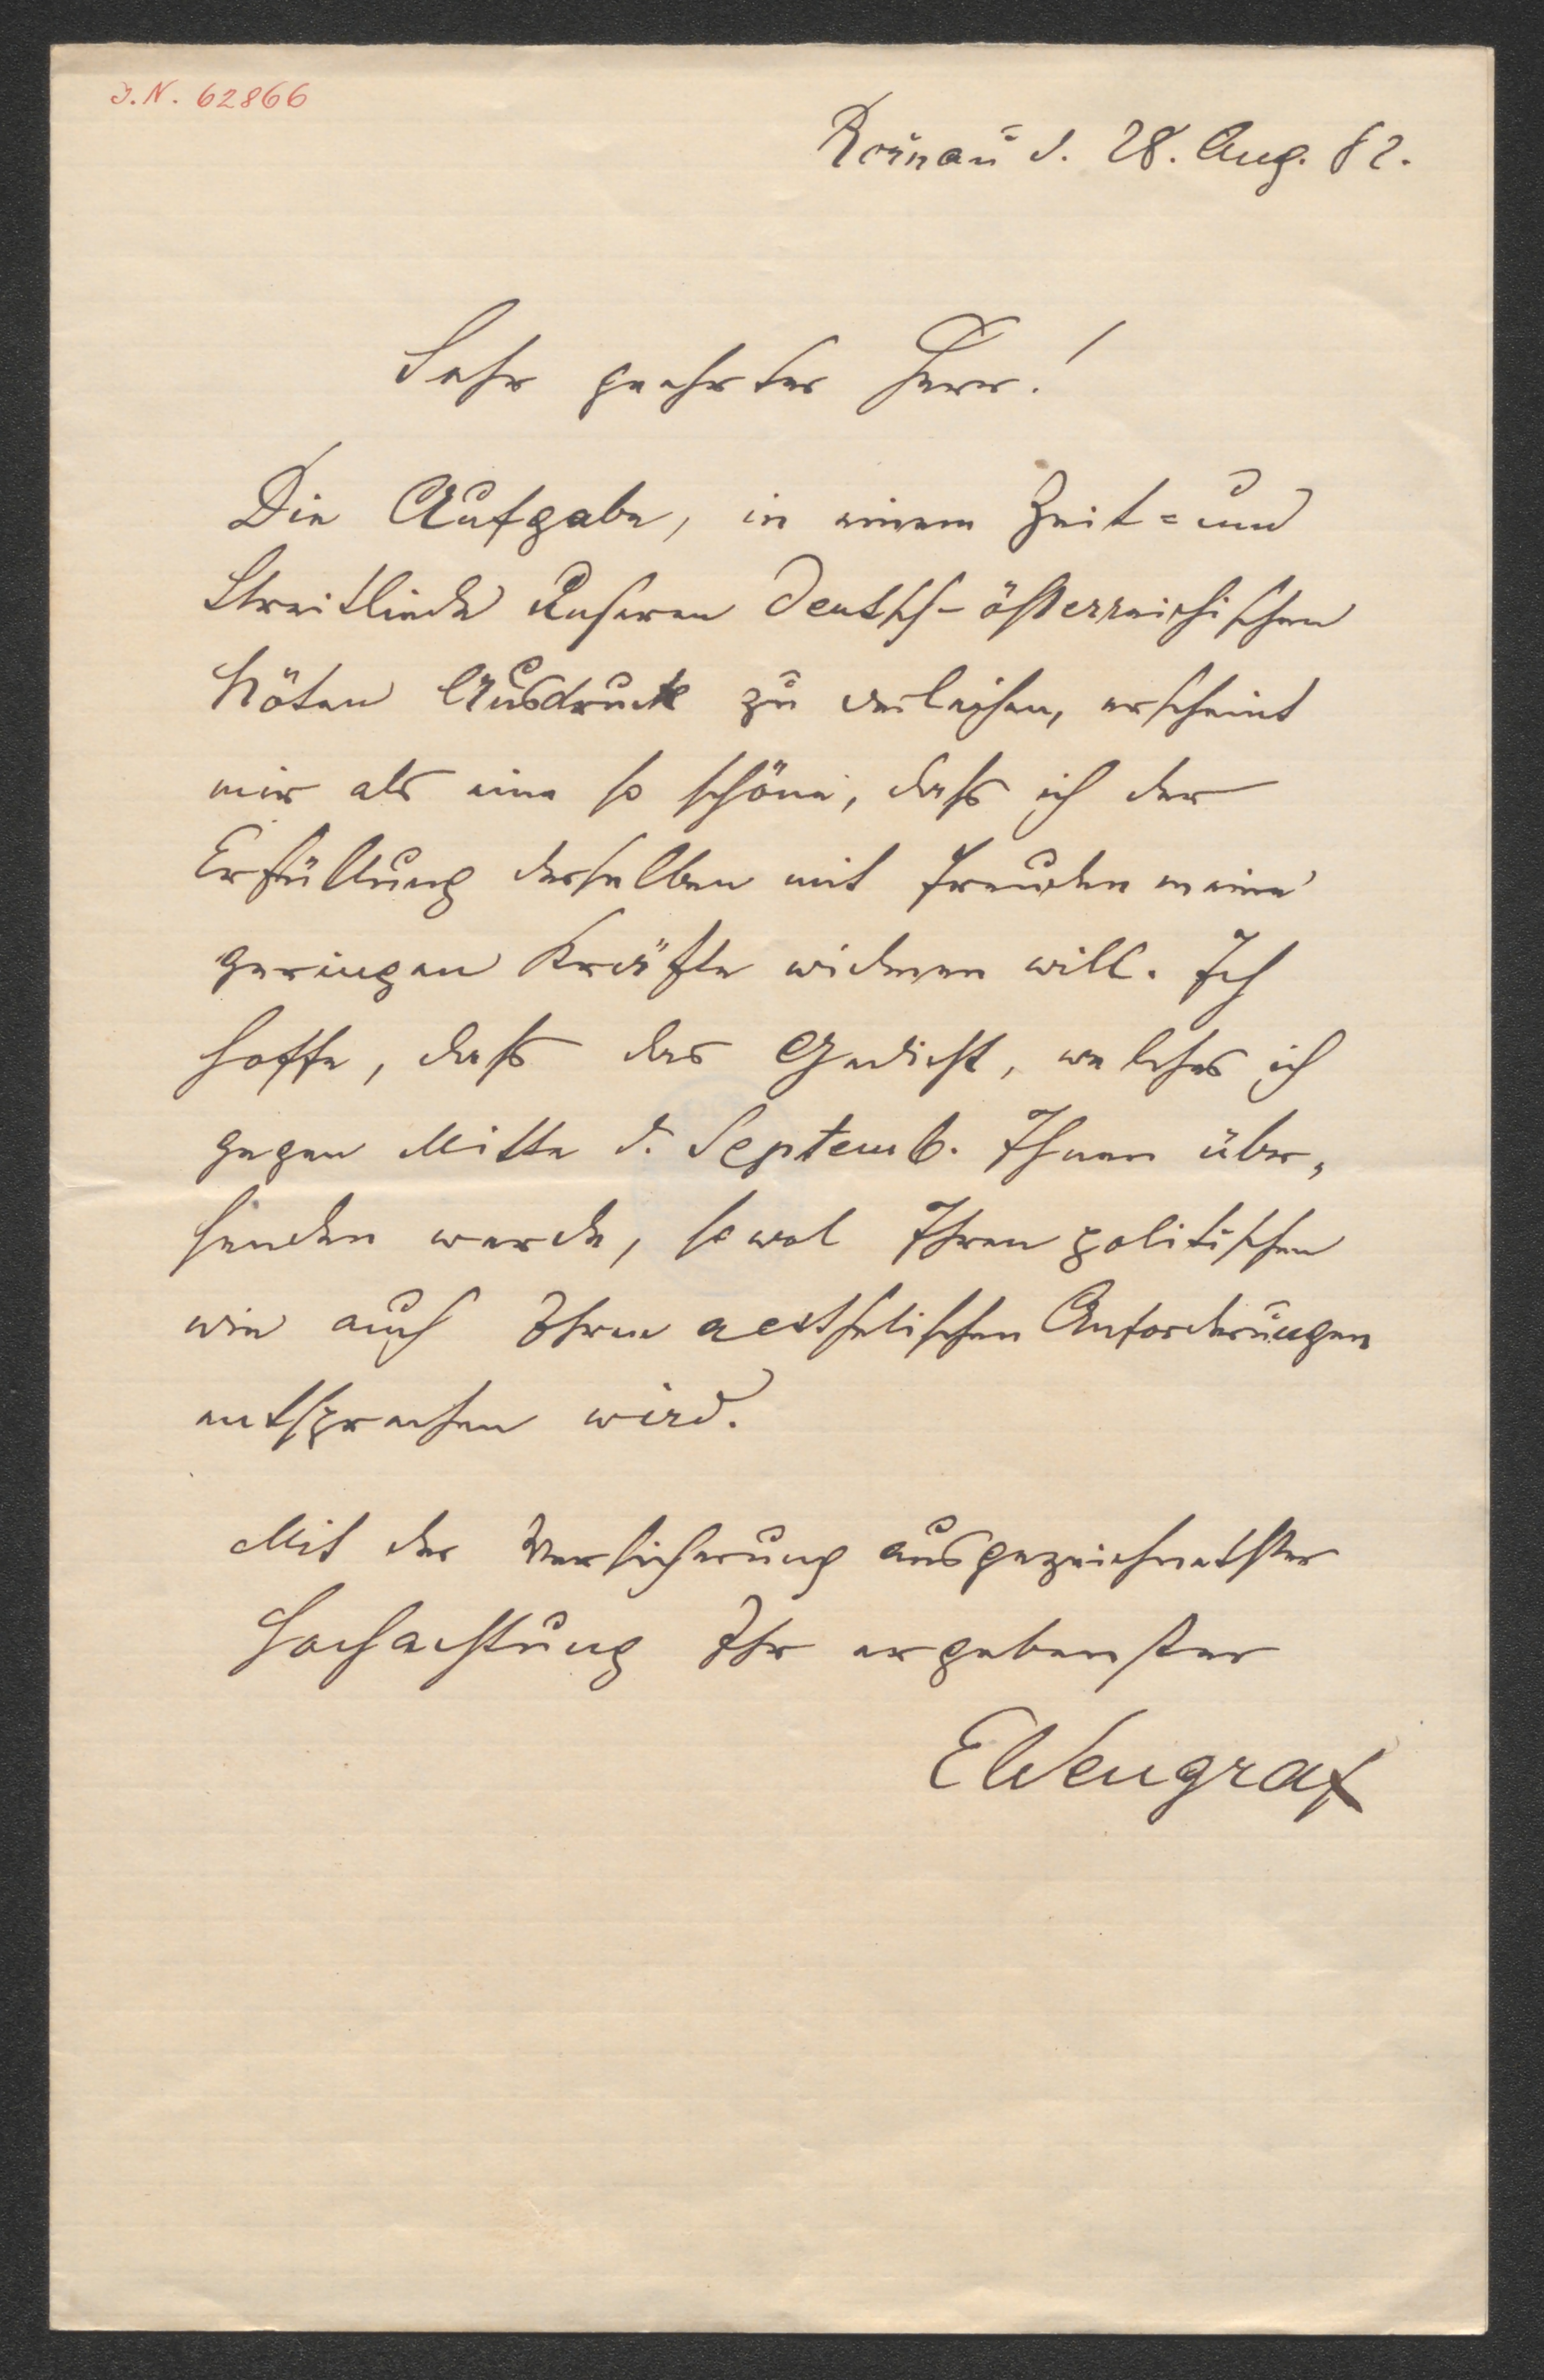 J.N. 62866
d. 28. Aug. 82.
Sehr geehrter Herr!
Die Aufgabe, in einem Zeit= und
Streitliede unseren deutsch-österreichischen
Nöten Ausdruck zu verleihen, erscheint
mir als eine so schöne, dass ich der
Erfüllung derselben mit Freuden meine
geringen Kräfte widmen will. Ich
hoffe, dass das Gedicht, welches ich
gegen Mitte d. Septemb. Ihnen über„
senden werde, sowol Ihren politischen
wie auch Ihren aesthetischen Anforderungen
entsprechen wird.
Mit der Versicherung ausgezeichnetster
Hochachtung Ihr ergebenster
EWengraf